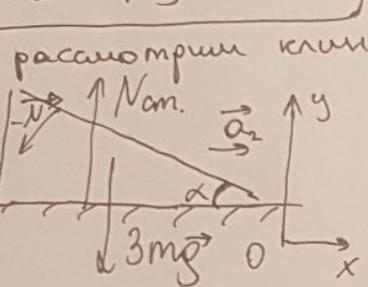 рассмотрим клин
-N⃗ Nст. a⃗₂ y
α
3mg⃗ O x